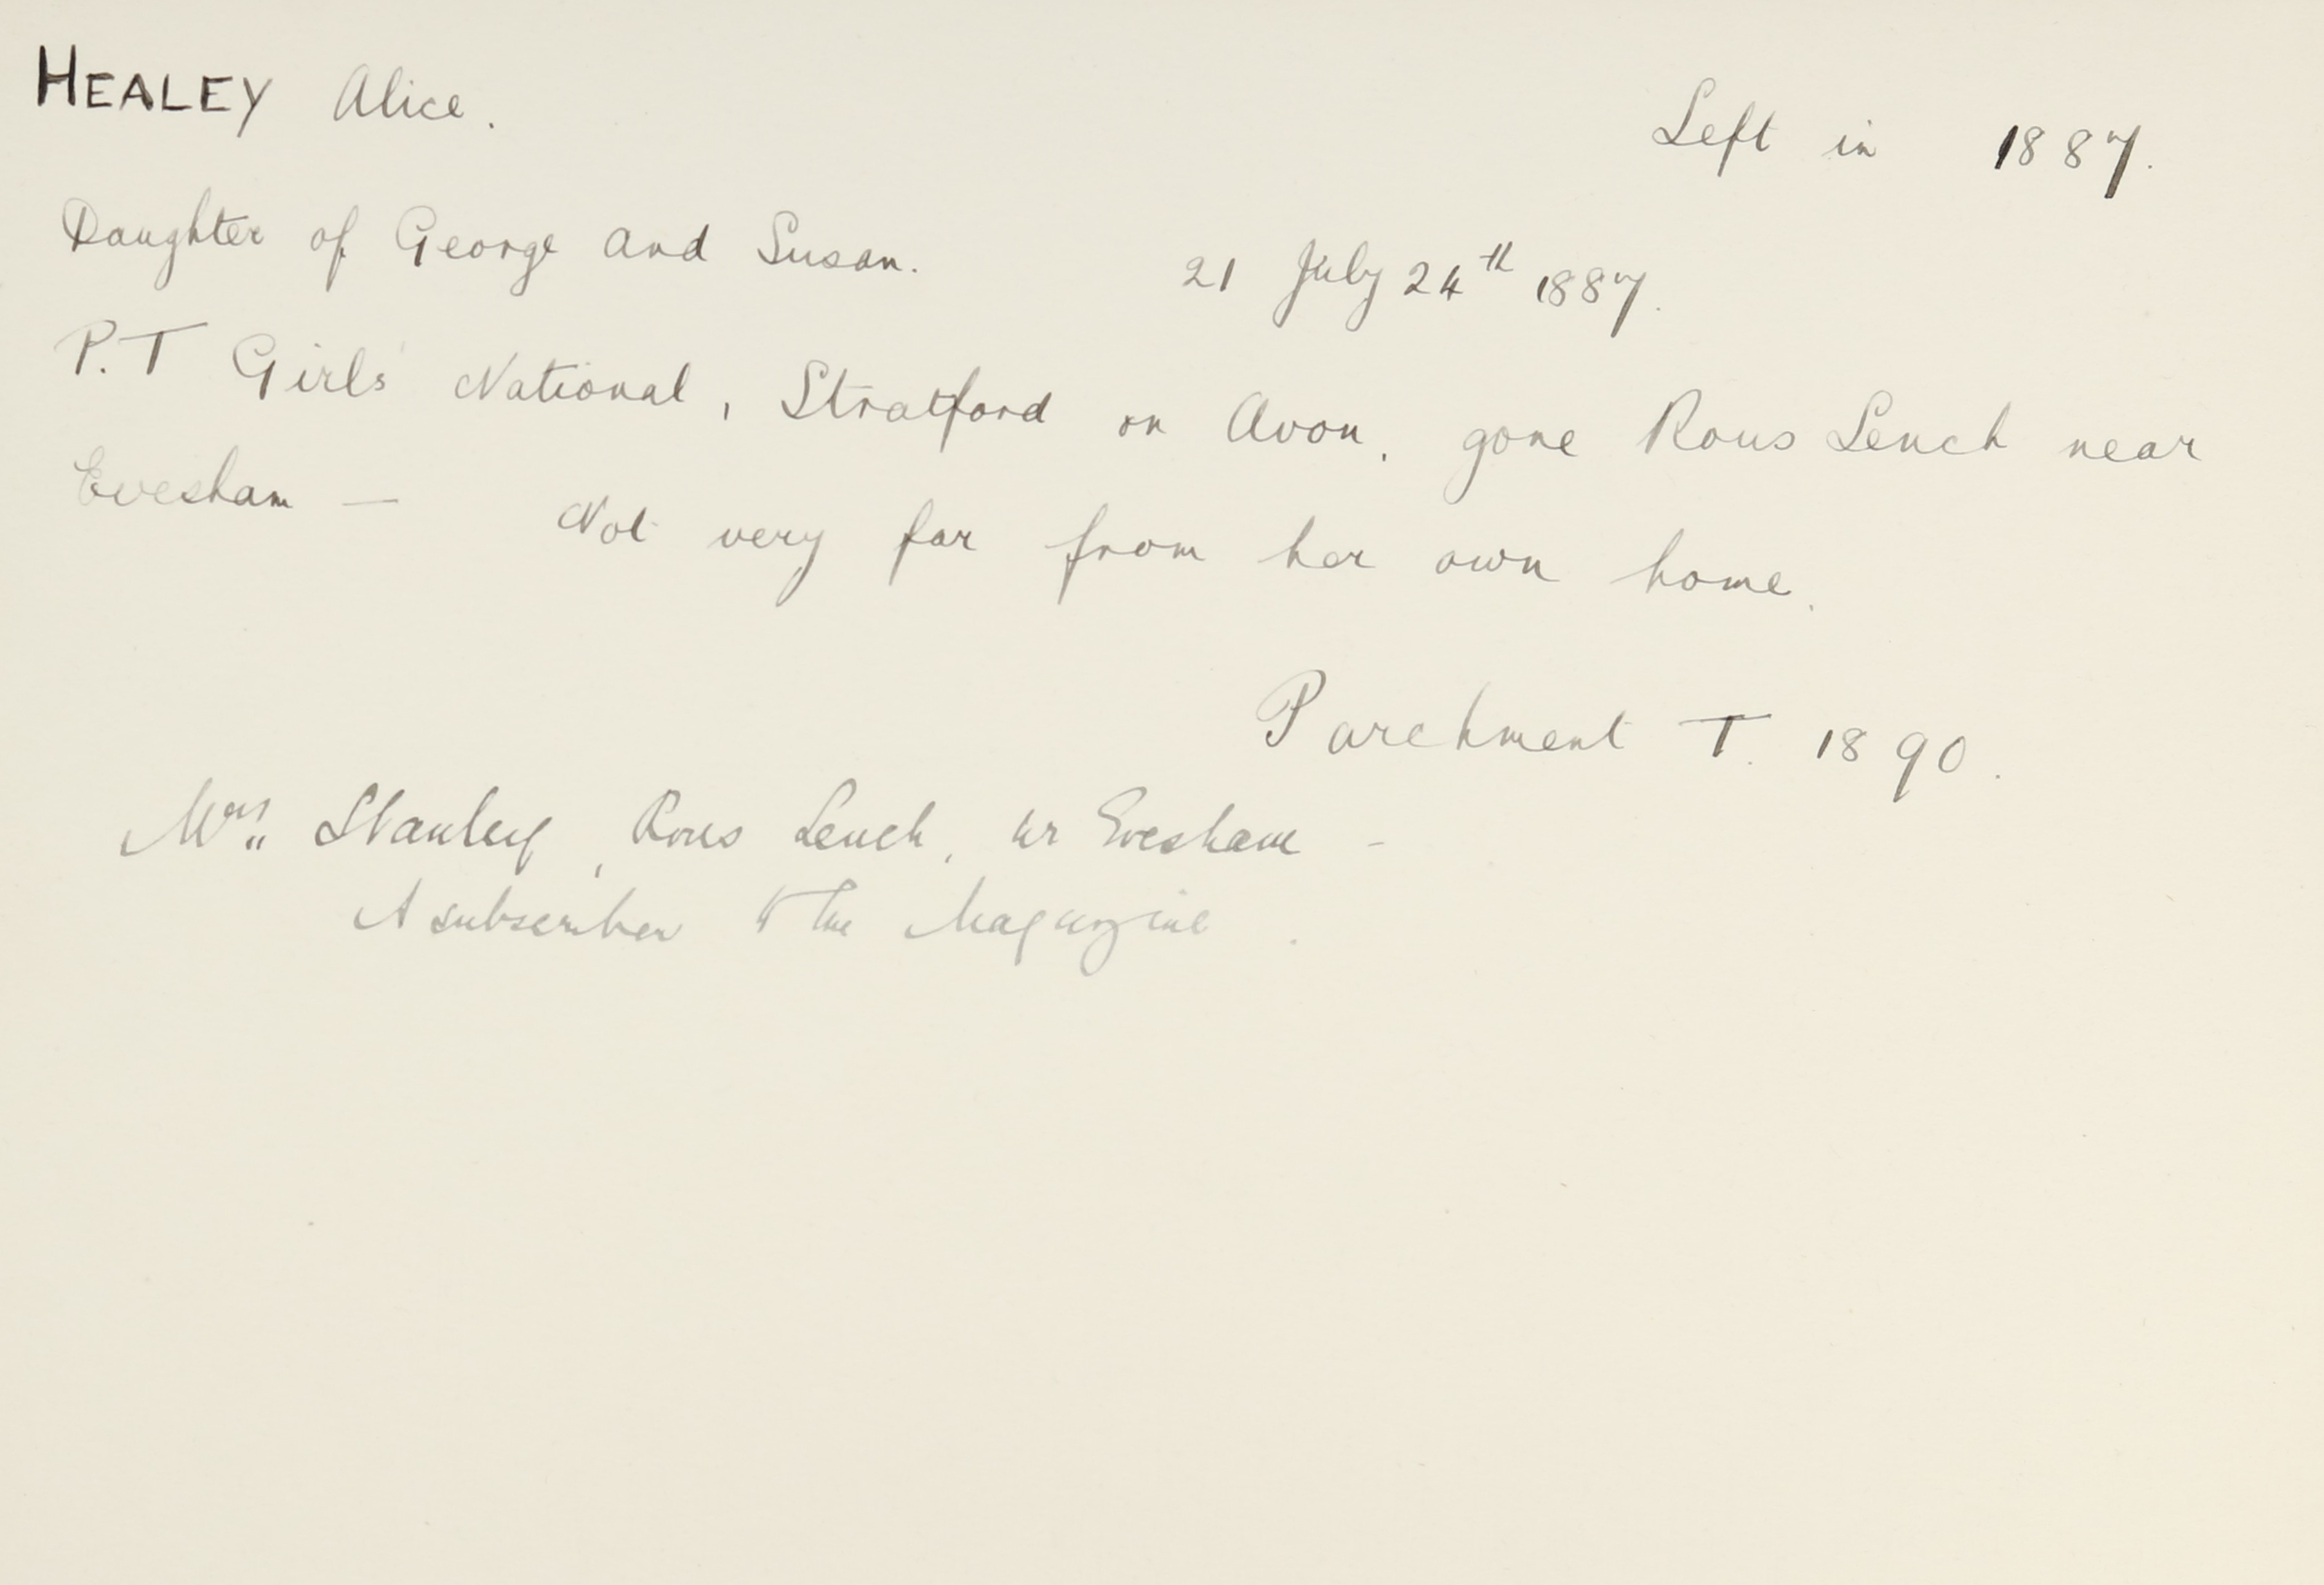 HEALEY Alice. Left in 1887.
Daughter of George and Susan. 21 July 24th 1887.
P.T Girls' National, Stratford on Avon, gone Rous Lench near
Evesham — Not very far from her own home.
Parchment T. 1890.
Mrs Stanley, Rous Lench, nr Evesham -
A subscriber to the Magazine.